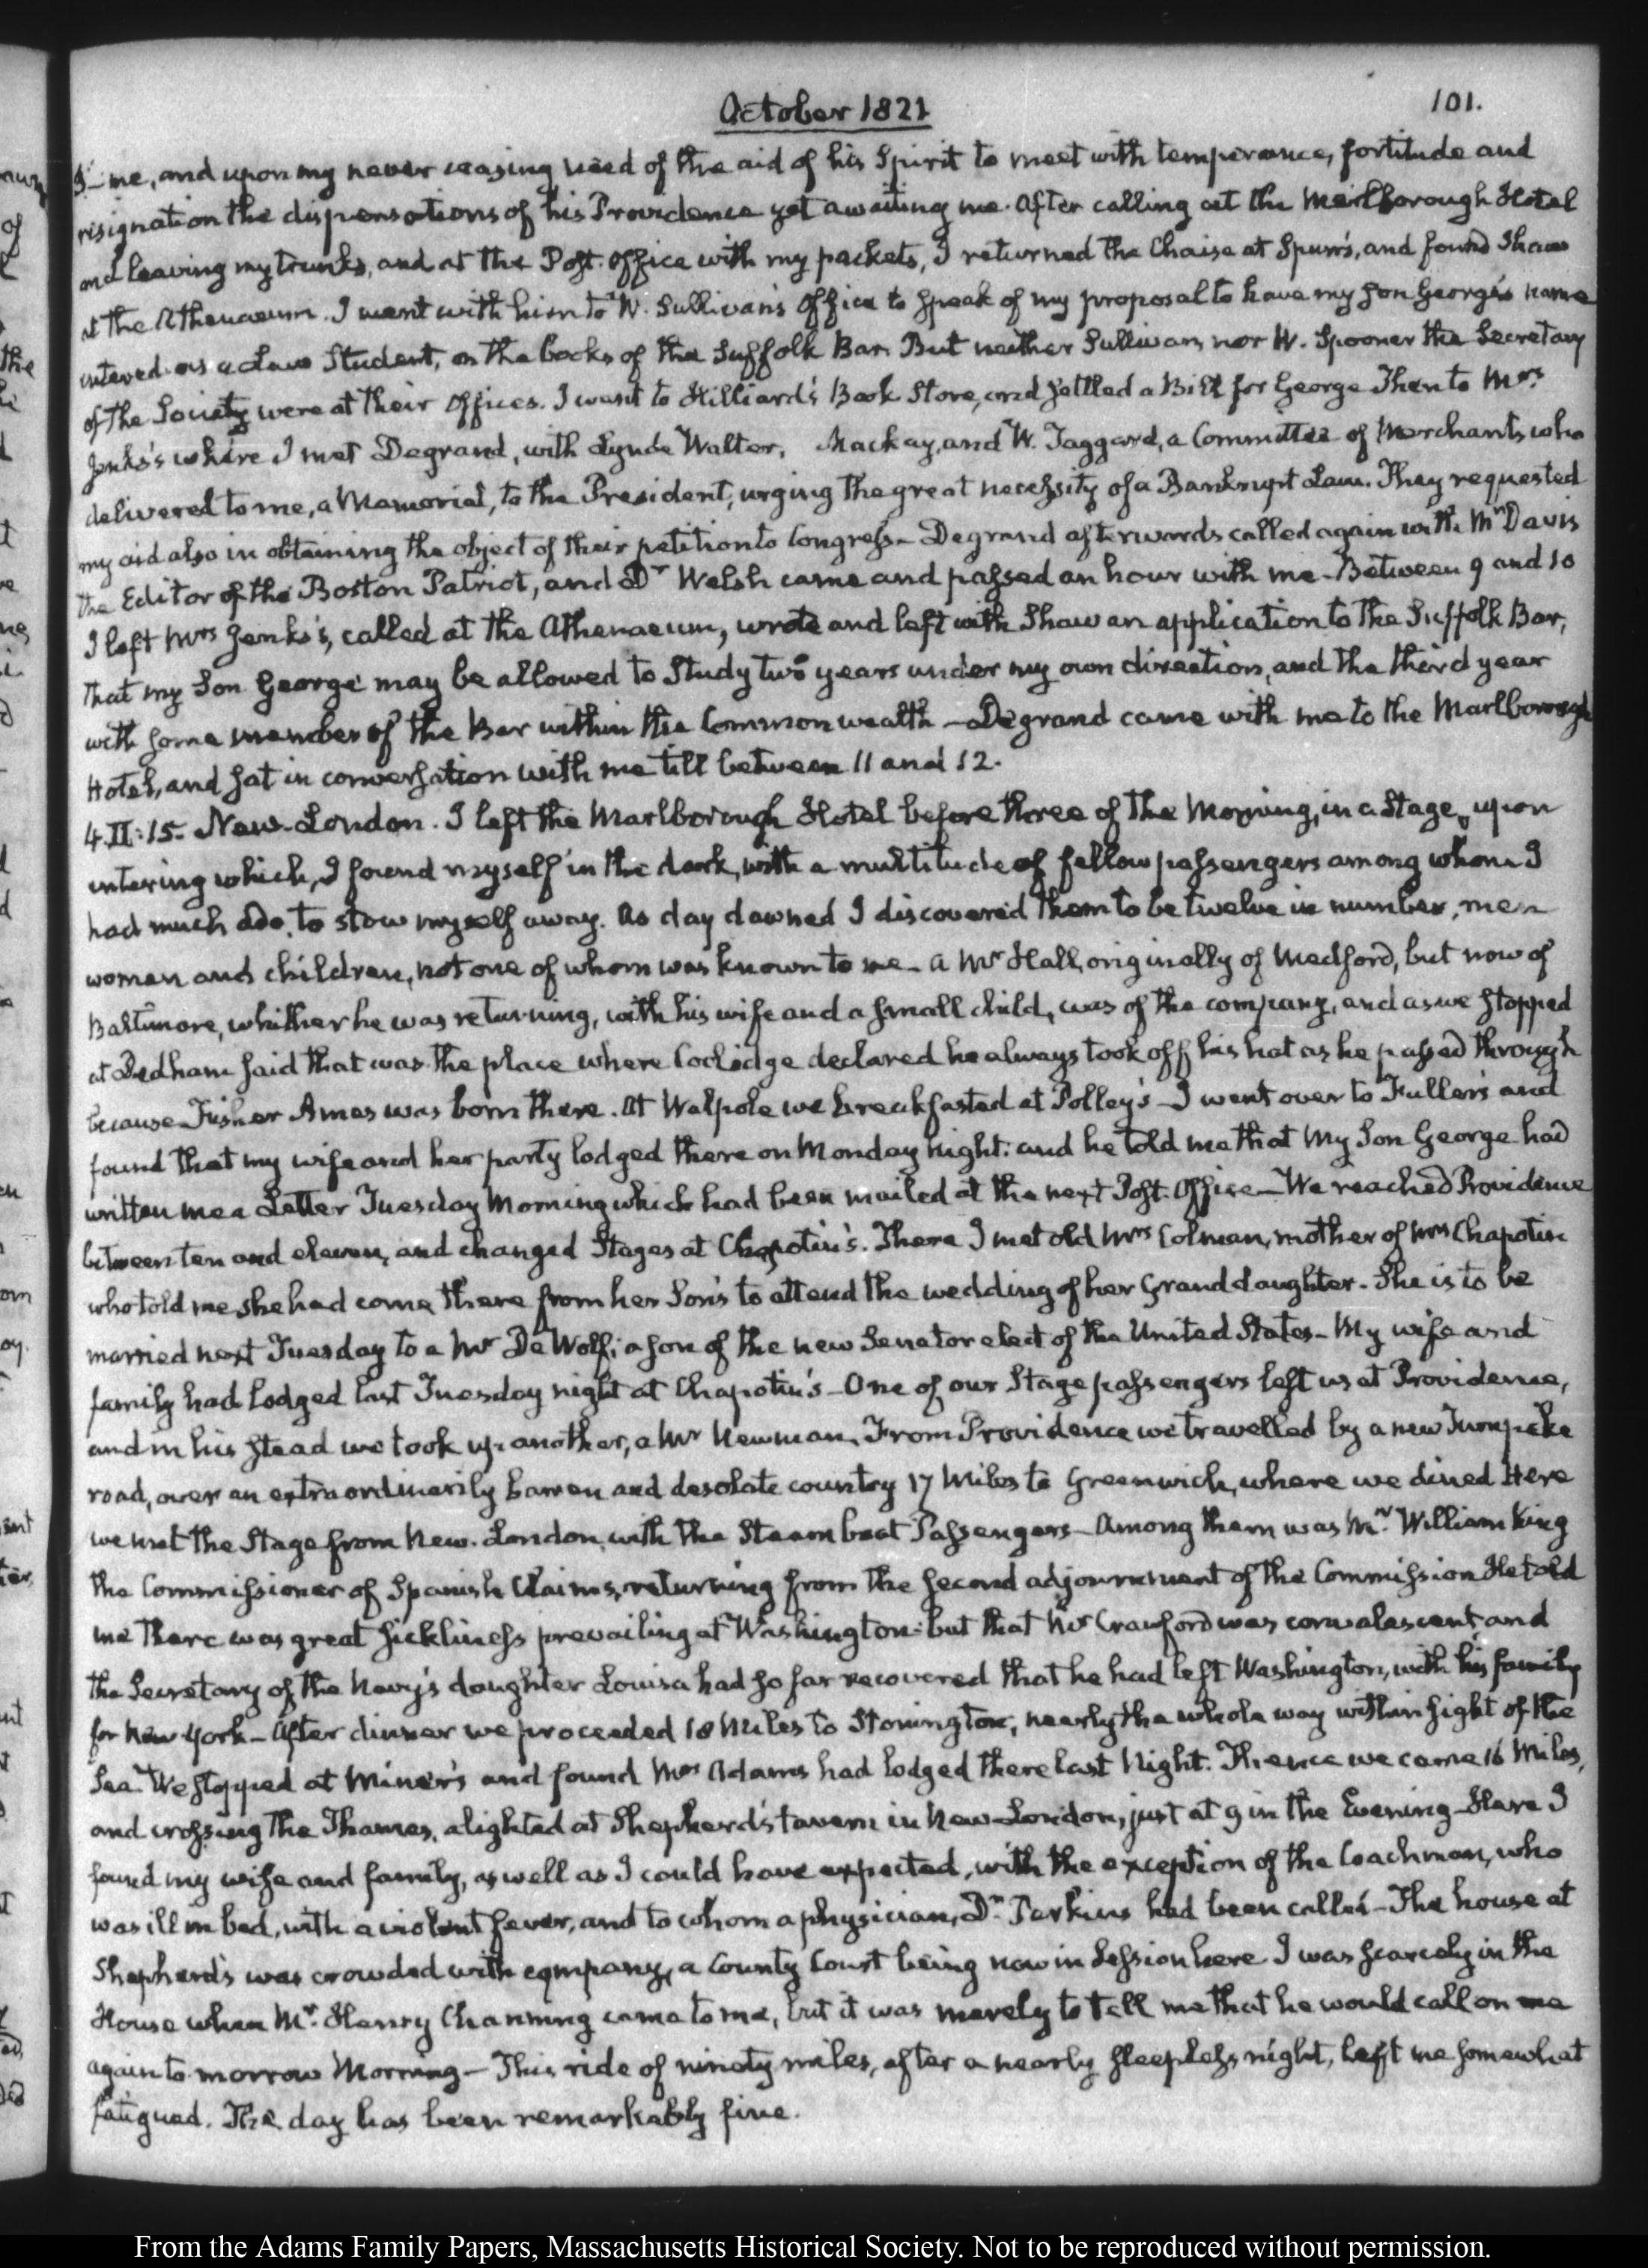 October 1821
101.
me, and upon my never ceasing need of the aid of his Spirit to meet with temperance, fortitude and
resignation the dispensations of his Providence yet awaiting me. After calling at the Marlborough Hotel
and leaving my trunks, and at the Post-Office with my packets, I returned the Chaise at Spurr's, and found Shaw
at the Athenaeum. I went with him to W. Sullivan's Office to speak of my proposal to have my Son George's name
entered as a Law Student, on the books of the Suffolk Bar. But neither Sullivan, nor W. Spooner the Secretary
of the Society were at their Offices. I went to Hilliard's Book Store, and settled a Bill for George. Then to Mrs.
Jenks's where I met Degrand, with Lynde Walter, Mackay, and W. Taggard, a Committee of Merchants who
delivered to me, a Memorial, to the President, urging the great necessity of a Bankrupt Law. They requested
my aid also in obtaining the object of their petition to Congress— Degrand afterwards called again with Mr. Davis
the Editor of the Boston Patriot, and Dr Welsh came and passed an hour with me— Between 9 and 10
I left Mrs Jenks's, called at the Athenaeum, wrote and left with Shaw an application to the Suffolk Bar,
that my Son George may be allowed to Study two years under my own direction, and the third year
with some member of the Bar within the Commonwealth— Degrand came with me to the Marlborough
Hotel, and sat in conversation with me till between 11 and 12.
4. II: 15. New-London. I left the Marlborough Hotel before three of the Morning, in a Stage, upon
entering which, I found myself in the dark, with a multitude of fellow passengers among whom I
had much ado, to stow myself away. As day dawned I discovered them to be twelve in number, men
women and children, not one of whom was known to me— A Mr Hall, originally of Medford, but now of
Baltimore, whither he was returning, with his wife and a small child, was of the company, and as we stopped
at Dedham said that was the place where Coolidge declared he always took off his hat as he passed through
because Fisher Ames was born there. At Walpole we breakfasted at Polley's— I went over to Fuller's and
found that my wife and her party lodged there on Monday night: and he told me that my Son George had
written me a Letter Tuesday Morning which had been mailed at the next Post-Office— We reached Providence
between ten and eleven, and changed Stages at Chapotin's. There I met old Mrs Colman, mother of Mrs Chapotin
who told me she had come there from her Son's to attend the wedding of her Granddaughter— She is to be
married next Tuesday to a Mr De Wolf; a son of the new Senator elect of the United States— My wife and
family had lodged last Tuesday night at Chapotin's— One of our Stage passengers left us at Providence,
and in his stead we took up another, a Mr Newman. From Providence we travelled by a new Turnpike
road, over an extraordinarily barren and desolate country 17 Miles to Greenwich, where we dined Here
we met the Stage from New-London, with the Steam boat Passengers— Among them was Mr. William King
the Commissioner of Spanish Claims, returning from the second adjournment of the Commission He told
me there was great sickliness prevailing at Washington: but that Mr Crawford was convalescent and
the Secretary of the Navy's daughter Louisa had so far recovered that he had left Washington, with his family
for New York— After dinner we proceeded 18 Miles to Stonington, nearly the whole way within sight of the
Sea. We stopped at Miner's and found Mrs Adams had lodged there last Night. Thence we came 16 Miles,
and crossing the Thames, alighted at Shepherd's tavern in New-London, just at 9 in the Evening— Here I
found my wife and family, as well as I could have expected, with the exception of the Coachman, who
was ill in bed, with a violent fever, and to whom a physician, Dr. Perkins had been called— The house at
Shepherd's was crowded with company, a County Court being now in Session here I was scarcely in the
House when Mr. Henry Channing came to me, but it was merely to tell me that he would call on me
again to-morrow Morning— This ride of ninety miles, after a nearly sleepless night, left me somewhat
fatigued. The day has been remarkably fine.
From the Adams Family Papers, Massachusetts Historical Society. Not to be reproduced without permission.